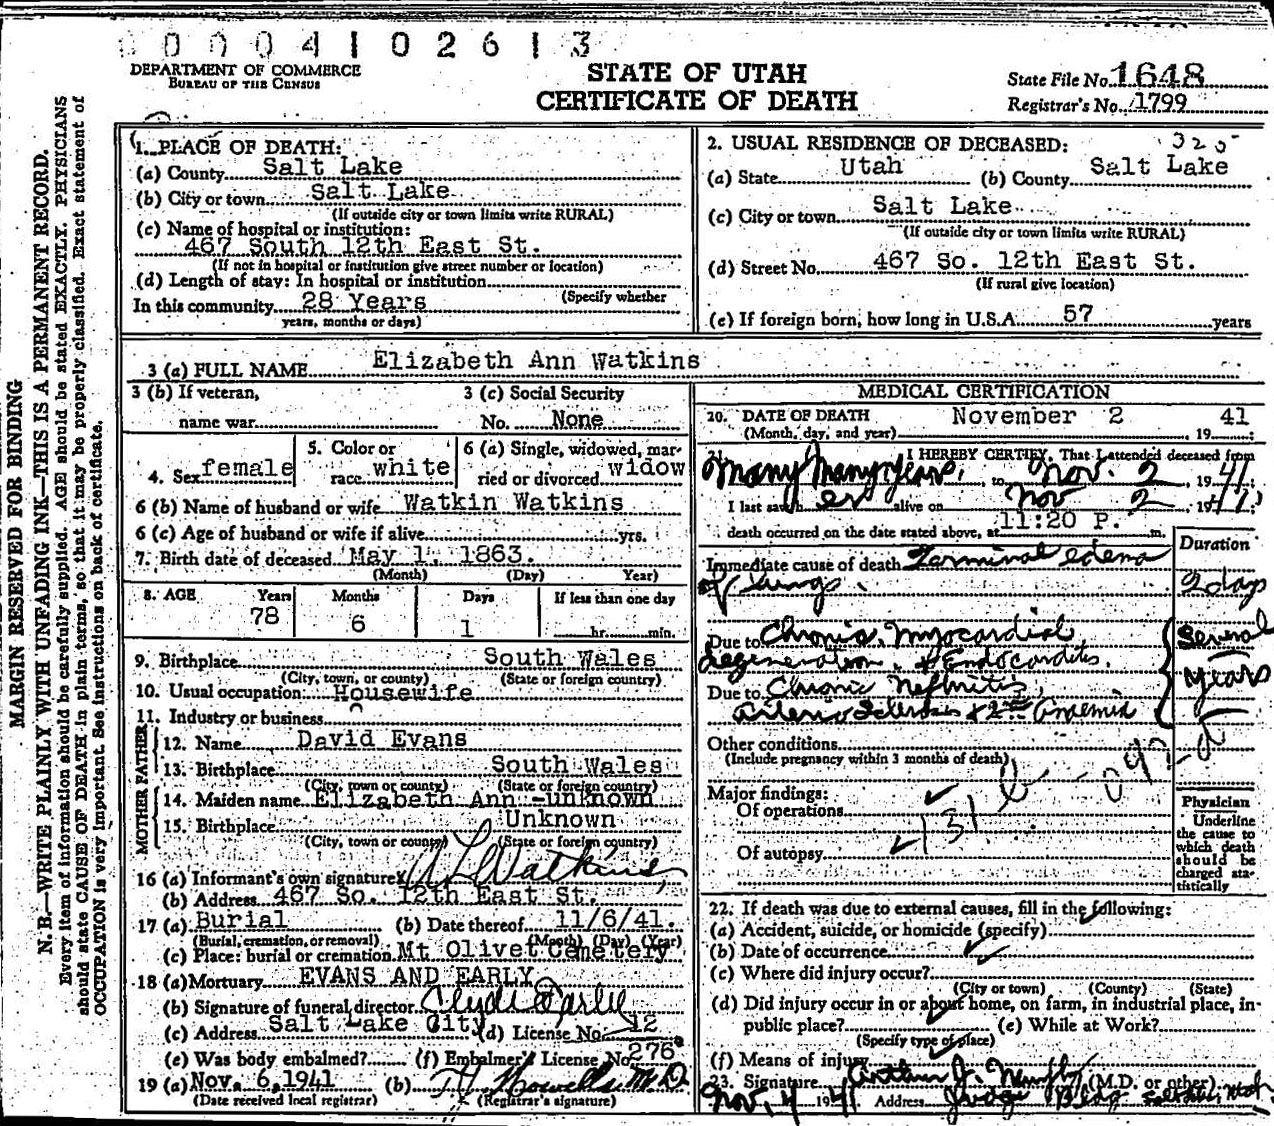 0 0 0 4 1 0 2 6 1 3
DEPARTMENT OF COMMERCE
BUREAU OF THE CENSUS
STATE OF UTAH
CERTIFICATE OF DEATH
State File No. 1648
Registrar's No. 1799
MARGIN RESERVED FOR BINDING
N. B.—WRITE PLAINLY WITH UNFADING INK—THIS IS A PERMANENT RECORD.
Every item of information should be carefully supplied. AGE should be stated EXACTLY. PHYSICIANS
should state CAUSE OF DEATH in plain terms, so that it may be properly classified. Exact statement of
OCCUPATION is very important. See instructions on back of certificate.
1. PLACE OF DEATH:
(a) County Salt Lake
(b) City or town Salt Lake
(If outside city or town limits write RURAL)
(c) Name of hospital or institution:
467 South 12th East St.
(If not in hospital or institution give street number or location)
(d) Length of stay: In hospital or institution
(Specify whether
In this community 28 Years
years, months or days)
2. USUAL RESIDENCE OF DECEASED: 325
(a) State Utah (b) County Salt Lake
(c) City or town Salt Lake
(If outside city or town limits write RURAL)
(d) Street No. 467 So. 12th East St.
(If rural give location)
(e) If foreign born, how long in U.S.A. 57 years
3 (a) FULL NAME Elizabeth Ann Watkins
3 (b) If veteran,
name war
3 (c) Social Security
No. None
4. Sex female
5. Color or
race white
6 (a) Single, widowed, mar-
ried or divorced widow
6 (b) Name of husband or wife Watkin Watkins
6 (c) Age of husband or wife if alive yrs.
7. Birth date of deceased May 1, 1863.
(Month) (Day) Year)
8. AGE Years Months Days If less than one day
78 6 1 hr. min.
9. Birthplace South Wales
(City, town, or county) (State or foreign country)
10. Usual occupation Housewife
11. Industry or business
FATHER
12. Name David Evans
13. Birthplace South Wales
(City, town or county) (State or foreign country)
MOTHER
14. Maiden name Elizabeth Ann -unknown
15. Birthplace Unknown
(City, town or county) (State or foreign country)
16 (a) Informant's own signature Watkins,
(b) Address 467 So. 12th East St.
17 (a) Burial (b) Date thereof 11/6/41.
(Burial, cremation, or removal) (Month) (Day) (Year)
(c) Place: burial or cremation Mt Olivet Cemetery
18 (a) Mortuary EVANS AND EARLY
(b) Signature of funeral director Clyde Early
(c) Address Salt Lake City (d) License No. 12
(e) Was body embalmed? (f) Embalmer's License No. 276
19 (a) Nov. 6, 1941 (b) M.D.
(Date received local registrar) (Registrar's signature)
MEDICAL CERTIFICATION
20. DATE OF DEATH November 2 1941
(Month, day, and year)
I HEREBY CERTIFY, That I attended deceased from
Many Many years, to Nov. 2, 1941
I last saw her alive on Nov 2, 1941
death occurred on the date stated above, at 11:20 P. m.
Duration
Immediate cause of death Terminal edema
of lungs. 2 days
Due to Chronic Myocardial
degeneration & Endocarditis.
Due to Chronic Nephritis,
Arterio Sclerosis & 2nd Anemia
Several
years
Other conditions
(Include pregnancy within 3 months of death)
Major findings:
Of operations
131 b
Of autopsy
Physician
Underline
the cause to
which death
should be
charged sta-
tistically
22. If death was due to external causes, fill in the following:
(a) Accident, suicide, or homicide (specify)
(b) Date of occurrence
(c) Where did injury occur?
(City or town) (County) (State)
(d) Did injury occur in or about home, on farm, in industrial place, in
public place? (e) While at Work?
(Specify type of place)
(f) Means of injury
23. Signature (M.D. or other)
Nov. 4 1941 Address Judge Bldg